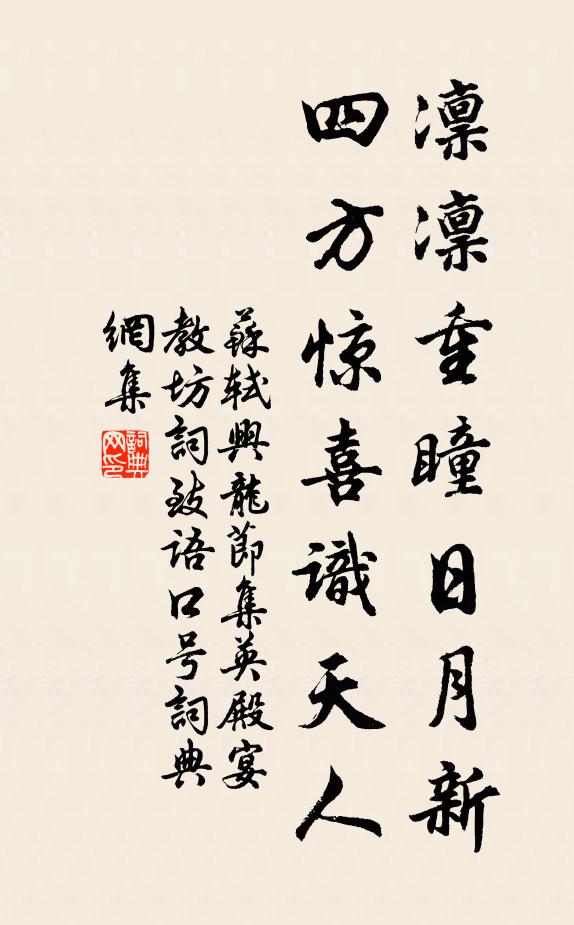 凛凛重瞳日月新
四方惊喜識天人
蘇軾興龍節集英殿宴
教坊詞致语口号詞典
網集
詞典
网印